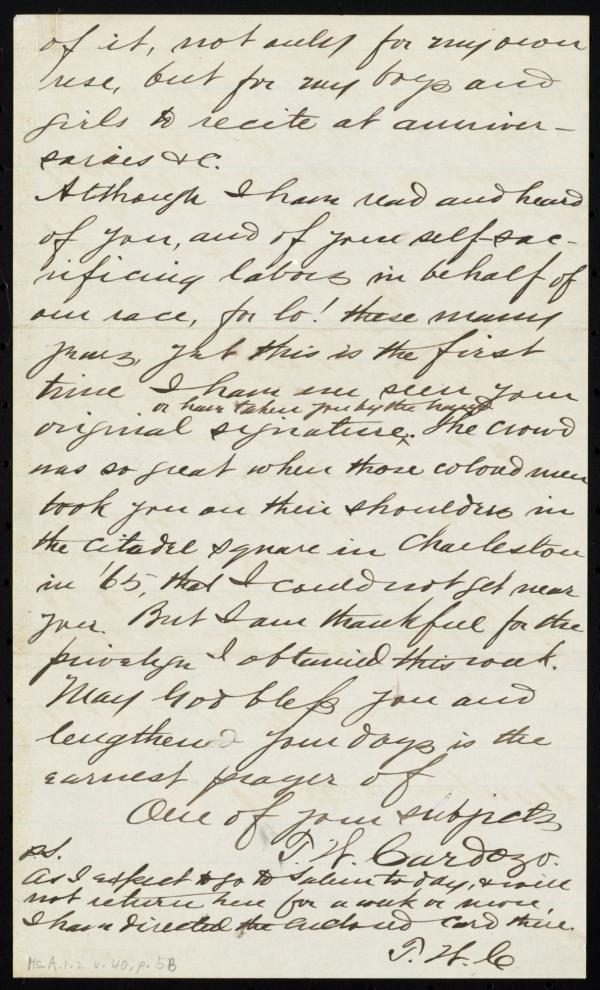 of it, not only for my own
use, but for my boys and
girls to recite at anniver-
saries &c.
Although I have read and heard
of you, and of your self-sac-
rificing labors in behalf of
our race, for lo! these many
years, yet this is the first
time I have ever seen your
or have taken you by the hand
original signature. The crowd
was so great when those colored men
took you on their shoulders in
the citadel square in Charleston
in '65, that I could not get near
you. But I am thankful for the
privelege I obtained this week.
May God bless you and
lengthened your days is the
earnest prayer of
One of your subjects
T. W. Cardozo.
P.S.
As I expect to go to Salem to day, & will
not return here for a week or more,
I have directed the enclosed card there.
T. W. C
Ms. A. 1. 2 v. 40, p. 5B